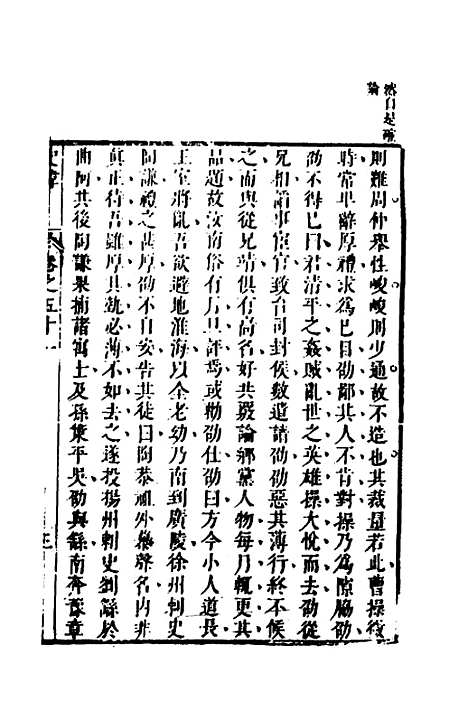 然自是確
論
則難周仲舉性峻峻則少通故不造也其裁量若此曹操微
時常卑辭厚禮求為巳目劭鄙其人不肯對操乃為隙脇劭
劭不得巳曰君清平之姦賊亂世之英雄操大悅而去劭從
兄相諂事宦官致台司封侯數遣請劭劭惡其薄行終不候
之而與從兄靖俱有高名好共覈論鄉黨人物每月輒更其
品題故汝南俗有月旦評焉或勸劭仕劭曰方今小人道長
王室將亂吾欲避地淮海以全老幼乃南到廣陵徐州刺史
陶謙禮之甚厚劭不自安告其徒曰陶恭祖外慕聲名内非
真正待吾雖厚其勢必薄不如去之遂投揚州刺史劉繇於
曲阿其後陶謙果捕諸寓士及孫策平吳劭與繇南奔豫章
卷之五十一